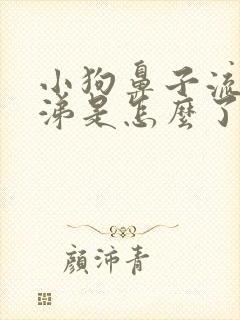 小狗鼻子流
涕是怎麼了
顏沛青